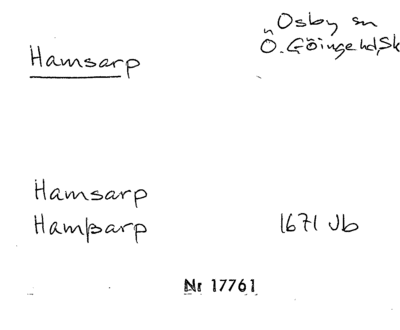 Osby sn
Ö. Göinge hd, Sk
Hamsarp
Hamsarp
Hamßarp 1671 Jb
Nr 17761